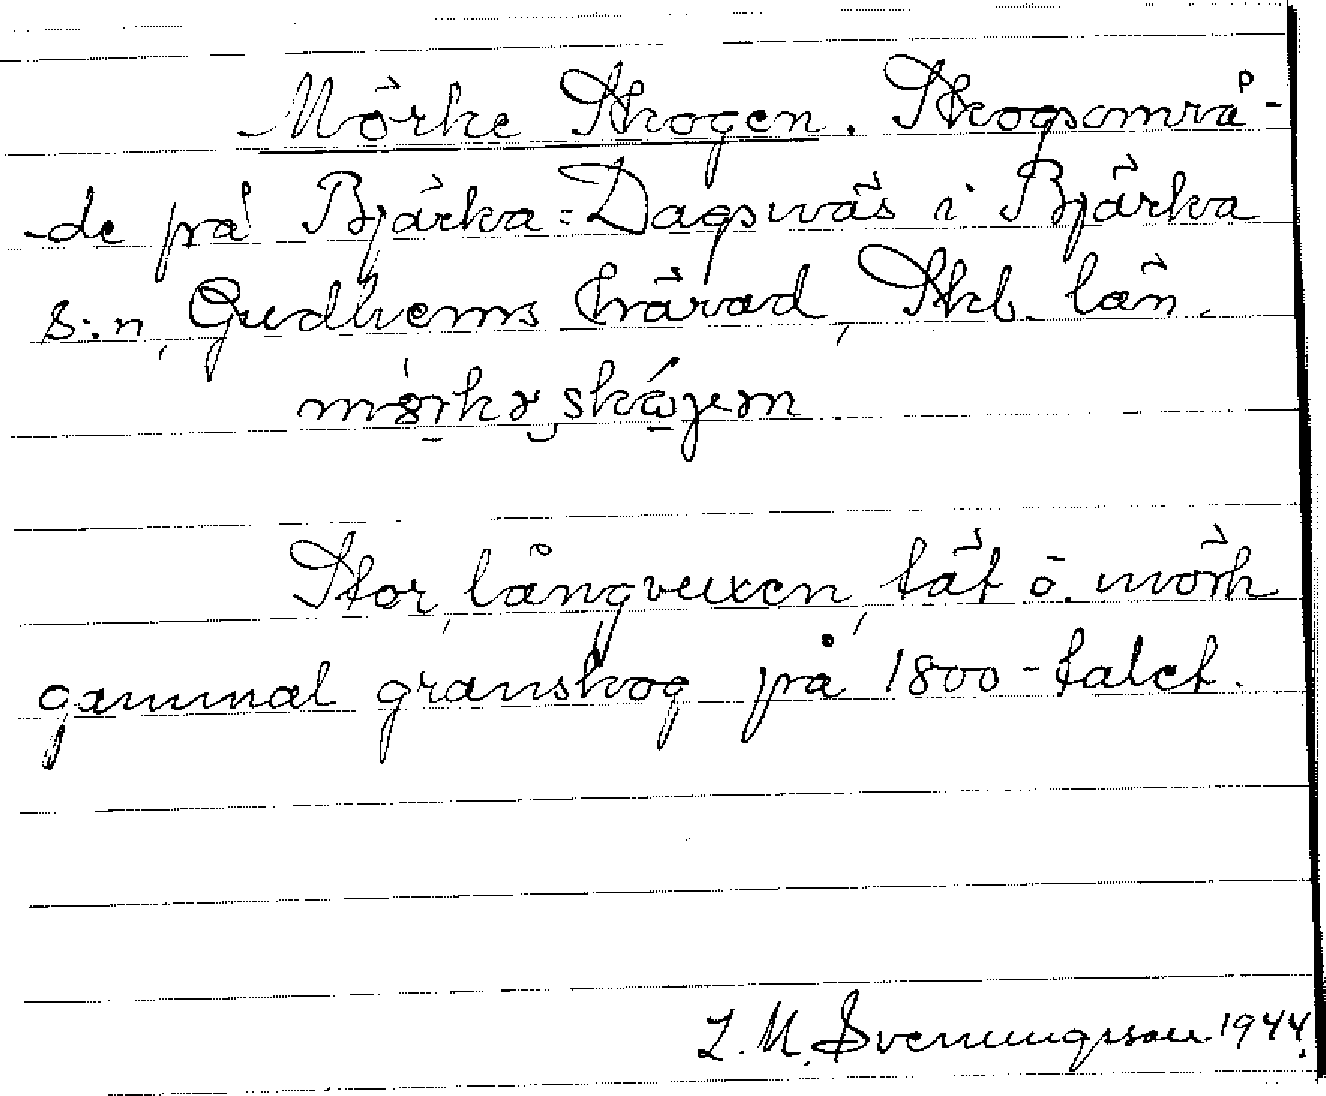 Mörke Skogen. Skogsområ-
de på Bjärka=Dagsnäs i Bjärka
s:n, Gudhems härad, Skb. län.
Stor, långvuxen, tät o. mörk
gammal granskog på 1800-talet.
L. M. Svenungsson 1944.